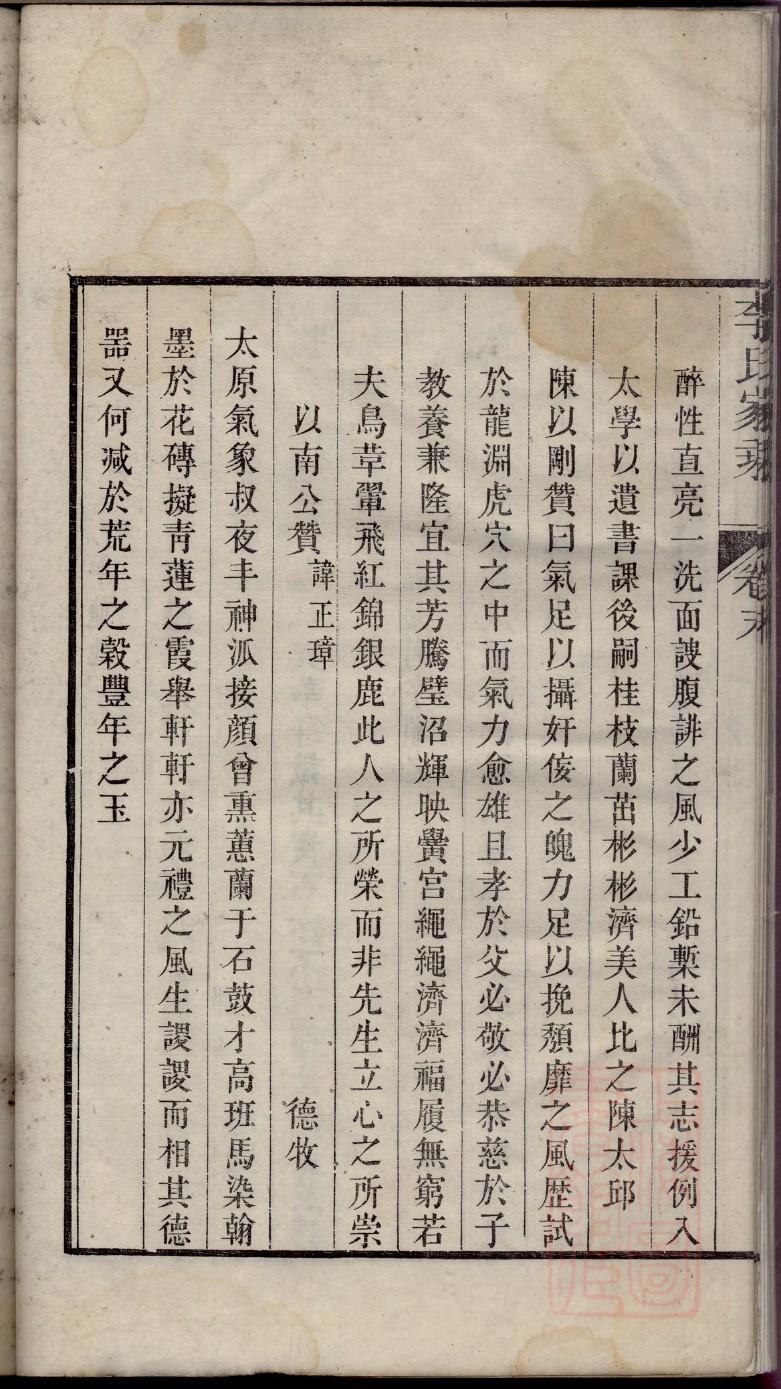 李氏家乘 卷末
醉性直亮一洗面諛腹誹之風少工鉛槧未酬其志援例入
太學以遺書課後嗣桂枝蘭茁彬彬濟美人比之陳太邱
陳以剛贊曰氣足以攝奸佞之魄力足以挽頽靡之風歴試
於龍淵虎穴之中而氣力愈雄且孝於父必敬必恭慈於子
教養兼隆宜其芳騰璧沼輝映黌宮繩繩濟濟福履無窮若
夫鳥革翬飛紅錦銀鹿此人之所榮而非先生立心之所崇
以南公贊 諱正璋 德牧
太原氣象叔夜丰神派接顔曾熏蕙蘭于石鼓才高班馬染翰
墨於花磚擬青蓮之霞舉軒軒亦元禮之風生謖謖而相其德
器又何减於荒年之穀豐年之玉